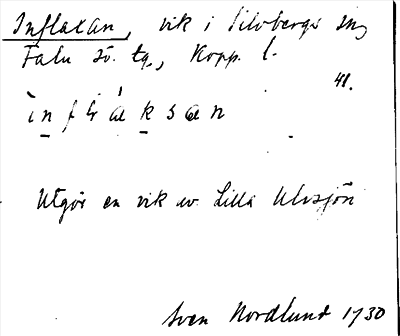 Inflaxan, vik i Silvbergs sn
Falu sö. tg., Kopp. l.
41.
Utgör en vik av Lilla Ulvsjön
Sven Nordlund 1930